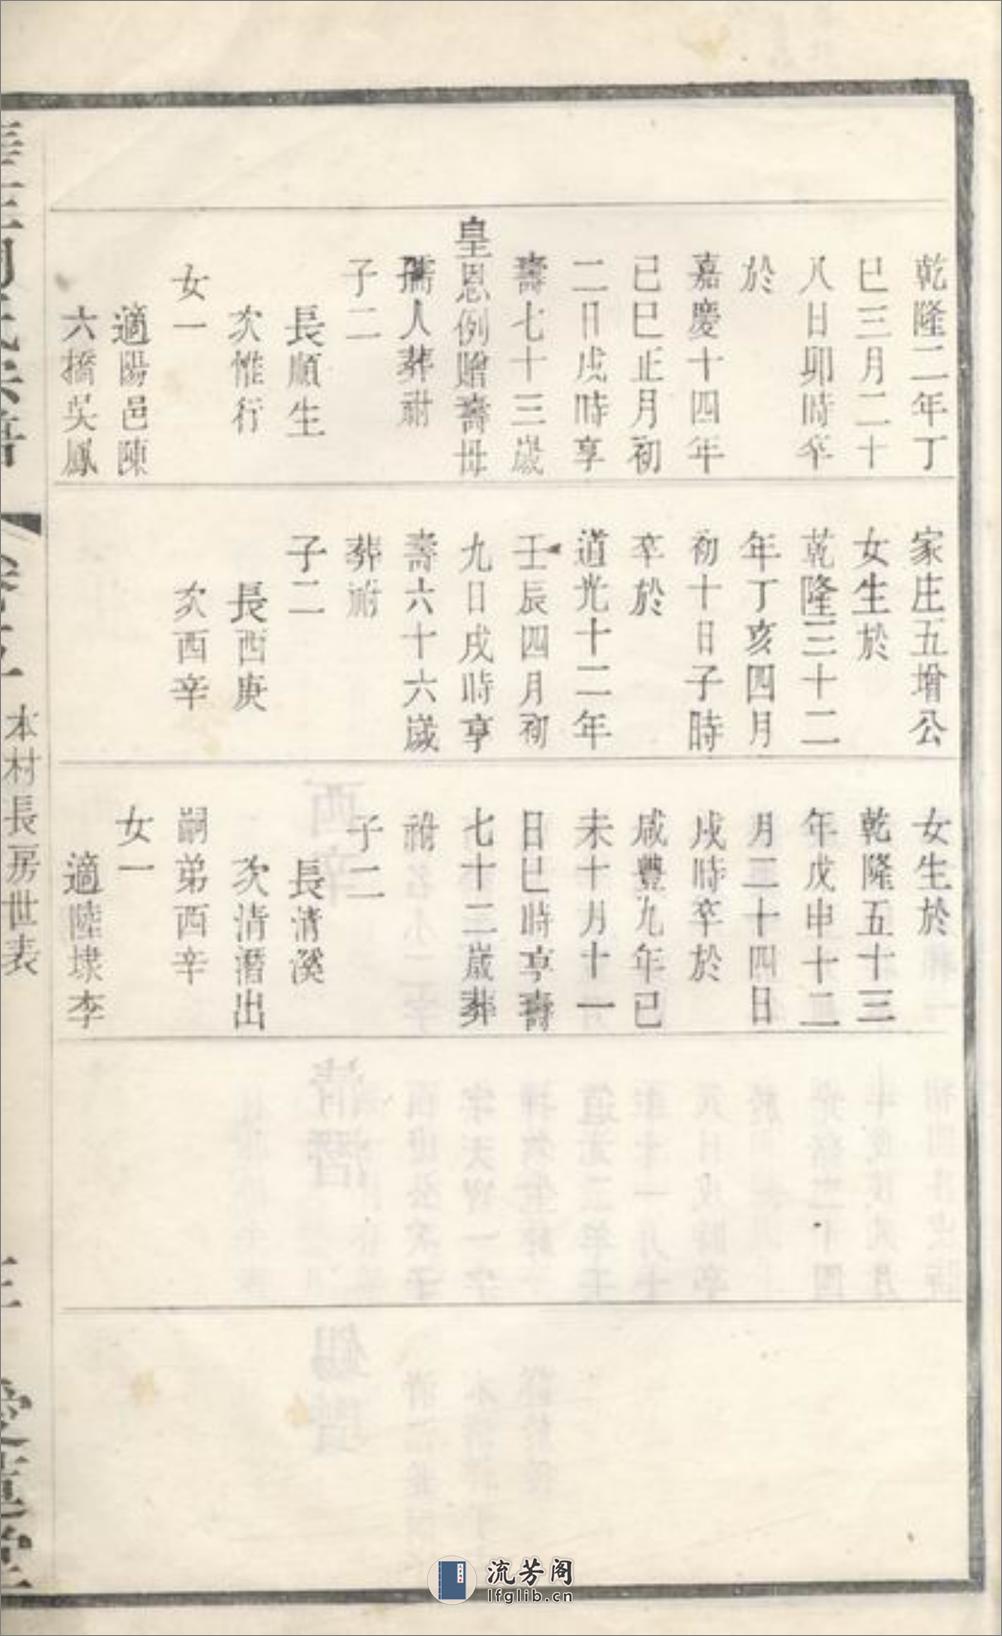 乾隆二年丁
巳三月二十
八日卯時卒
於
嘉慶十四年
己巳正月初
二日戌時享
壽七十三歲
皇恩例贈壽母
孺人葬祔
子二
長順生
次惟行
女一
適陽邑陳
六橋吳鳳
家庄五增公
女生於
乾隆三十二
年丁亥四月
初十日子時
卒於
道光十二年
壬辰四月初
九日戌時享
壽六十六歲
葬祔
子二
長酉庚
次酉辛
女生於
乾隆五十三
年戊申十二
月二十四日
戌時卒於
咸豐九年已
未十月十一
日巳時享壽
七十二歲葬
祔
子二
長清溪
次清潛出
嗣弟酉辛
女一
適陸埭李
本村長房世表
流芳阁
lfglib.cn